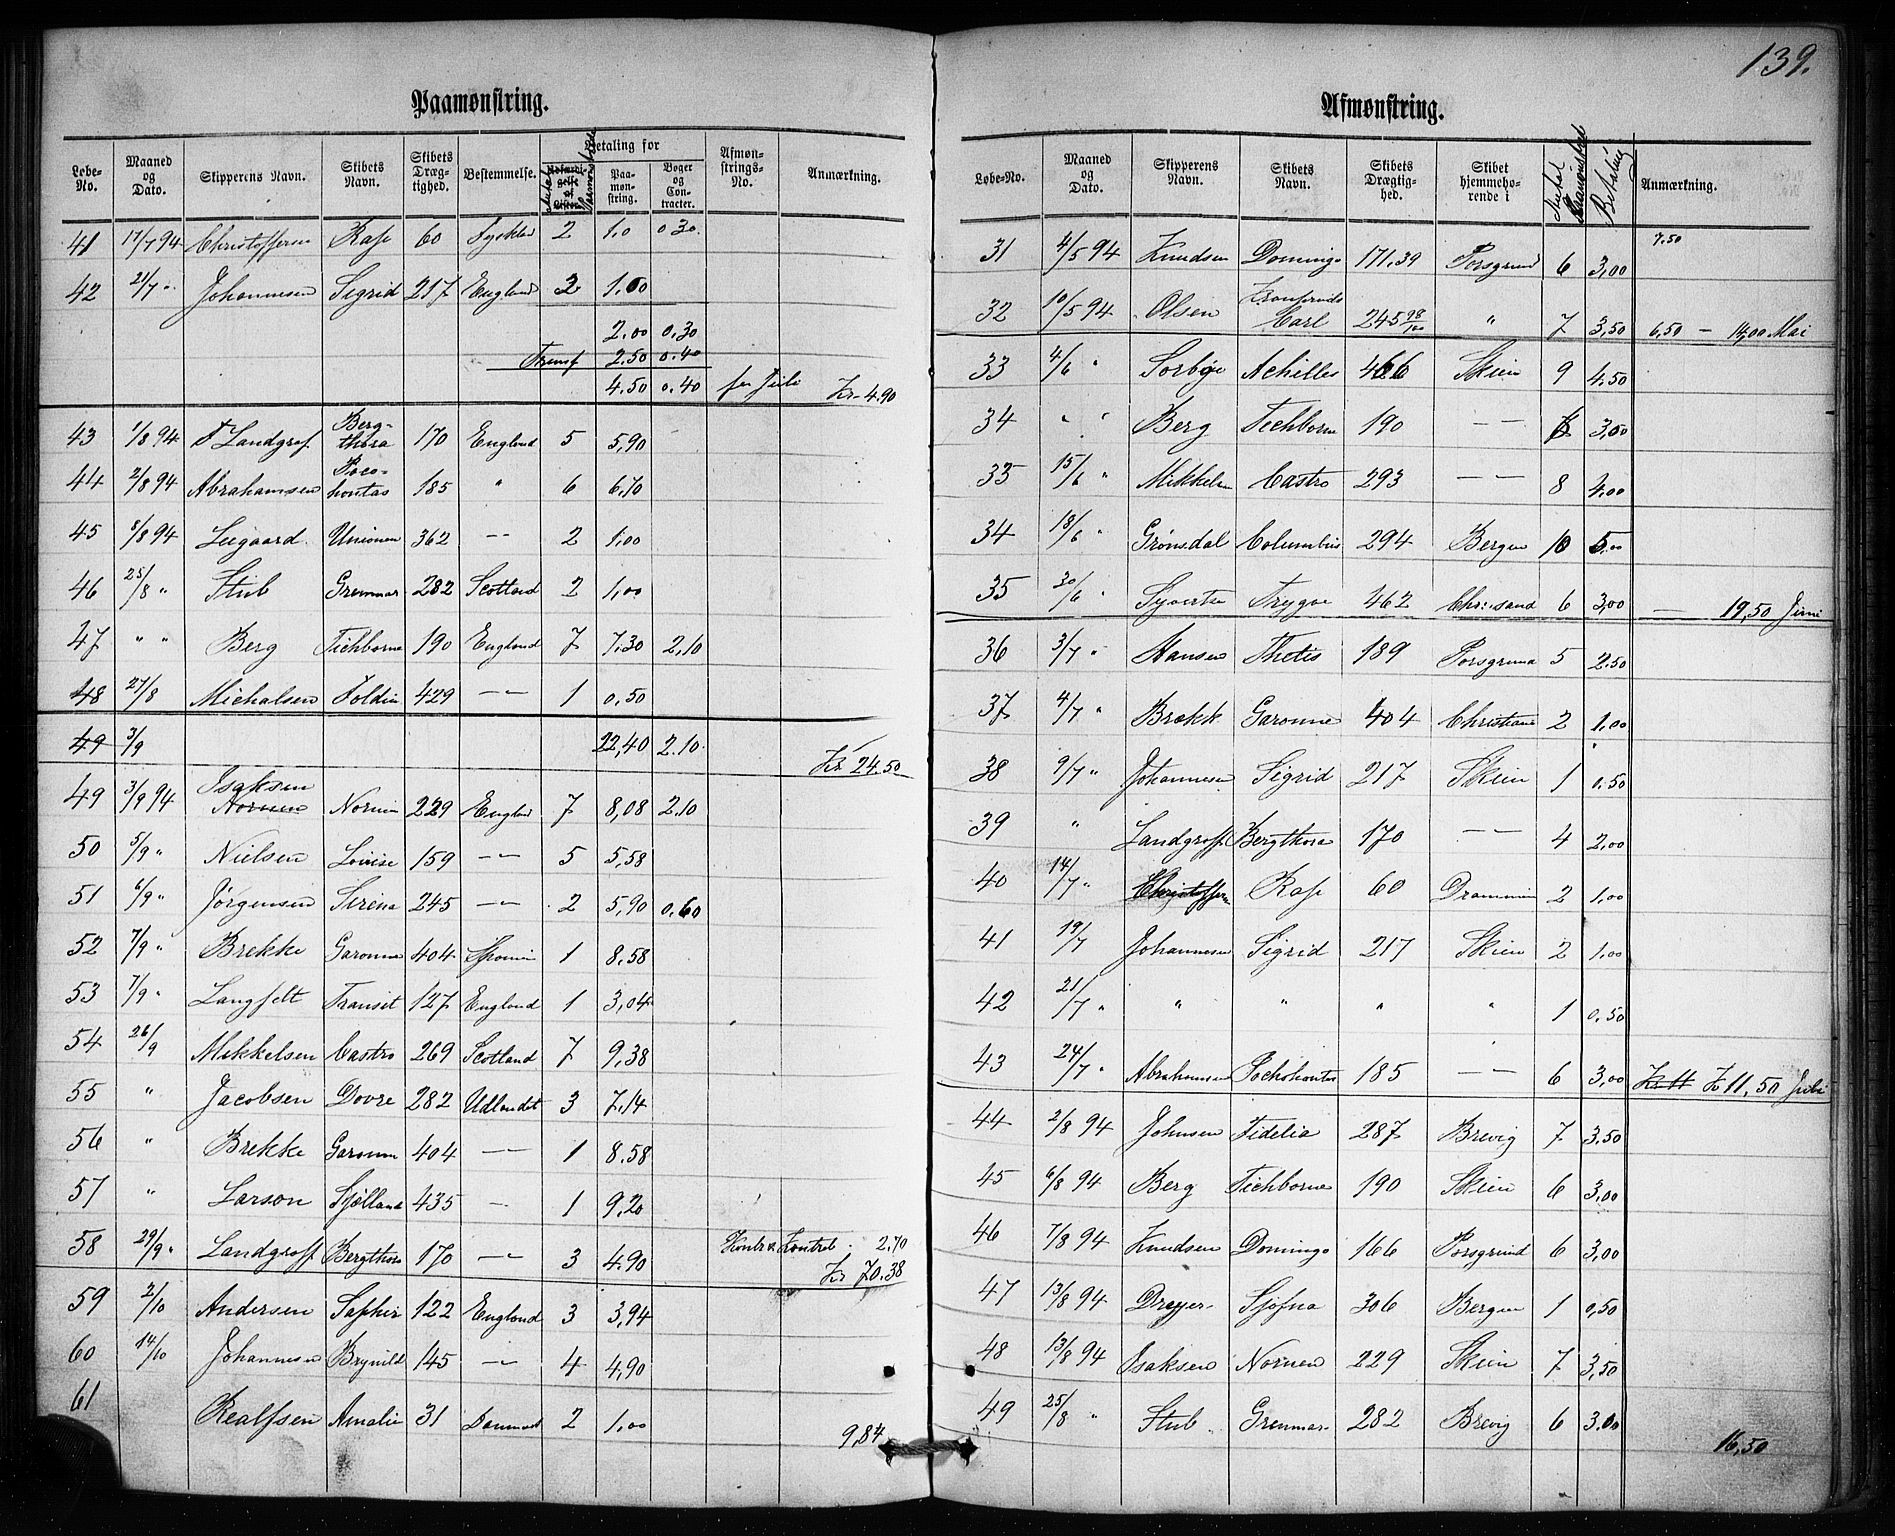 139.
Paamønstring.
Løbe-No. Maaned og Dato. Skipperens Navn. Skibets Navn. Skibets Drægtighed. Bestemmelse. Betaling for Paamønstring. Bøger og Contracter. Afmønstrings-No. Anmærkning.
41 17/7 94 Christoffersen Rap 60 Tyskld 2 1.0 0 30.
42 21/7 " Johannesen Sigrid 217 England 2 1.00
2.00 0.30
Transp 2.50 0.40
4.50 0.40 for Juli Kr. 4.90
43 1/8 94 Landgraf Bergthora 170 England 5 5,90
44 2/8 94 Abrahamsen Pocohontas 185 " 6 6,70
45 8/8 94 Leegaard Unionen 362 -"- 2 1,00
46 25/8 " Stub Grenmar 282 Scotland 2 1,00
47 " " Berg Tichborne 190 England 7 7,30 2,10
48 27/8 Michalsen Foldin 429 -"- 1 0,50
49 3/9 22,40 2.10 Kr 24.50
49 3/9 94 Isaksen Nornen Nornen 229 England 7 8,08 2.10
50 5/9 " Nielsen Lovise 159 -"- 5 5,58
51 6/9 " Jørgensen Sirena 245 -"- 2 5,90 0.60
52 7/9 " Brekke Garonne 404 Spanien 1 8.58
53 7/9 " Langfelt Transit 127 England 1 3,04
54 26/9 Mikkelsen Castro 269 Scotland 7 9,38
55 " Jacobsen Dovre 282 Udlandet 3 7.14
56 " Brekke Garonne 404 -"- 1 8.58
57 " Larson Sjølland 435 -"- 1 9,20
58 29/9 " Landgraff Bergthora 170 -"- 3 4.90 2.70
Kr 70.38
59 2/10 Andersen Saphir 122 England 3 3,94
60 14/10 Johannesen Brynild 145 -"- 4 4,90
61 Realfsen Amalie 31 Danmark 2 1,00 9,84
Afmønstring.
Løbe-No. Maaned og Dato. Skipperens Navn. Skibets Navn. Skibets Drægtighed. Skibet hjemmehørende i Antal Paamønstrede Betaling Anmærkning.
31 4/5 94 Knudsen Domingo 171,39 Porsgrund 6 3,00 7.50
32 10/5 94 Olsen Kronprinds Carl 245 98/100 " 7 3,50 6,50 - 14,00 Mai
33 4/6 " Sorbøe Achilles 466 Skien 9 4,50
34 " " Berg Tichborne 190 -"- 6 3,00
35 15/6 " Mikkelsen Castro 293 -"- 8 4,00
34 18/6 " Grønsdal Columbus 294 Bergen 10 5,00
35 30/6 " Syvertsen Trygve 462 Chr.sand 6 3,00 - 19,50 Juni
36 3/7 " Hansen Thetis 189 Porsgrund 5 2.50
37 4/7 " Brækk Garonne 404 Christiania 2 1,00
38 9/7 " Johannesen Sigrid 217 Skien 1 0,50
39 " Landgraff Bergthora 170 -"- 4 2,00
40 14/7 " Christoffersen Rap 60 Drammen 2 1,00
41 19/7 Johannesen Sigrid 217 Skien 2 1,00
42 21/7 " " " " " 1 0,50
43 24/7 " Abrahamsen Pochohontas 185 -"- 6 3,00 Kr 11 Kr 11,50 Juli
44 2/8 94 Johnsen Fidelia 287 Brevig 7 3,50
45 6/8 94 Berg Tichborne 190 Skien 6 3,00
46 7/8 94 Knudsen Domingo 166 Porsgrund 6 3,00
47 13/8 94 Dreyer Sjofna 306 Bergen 1 0,50
48 13/8 94 Isaksen Nornen 229 Skien 7 3,50
49 25/8 " Stub Grenmar 282 Brevig 6 3,00
16,50